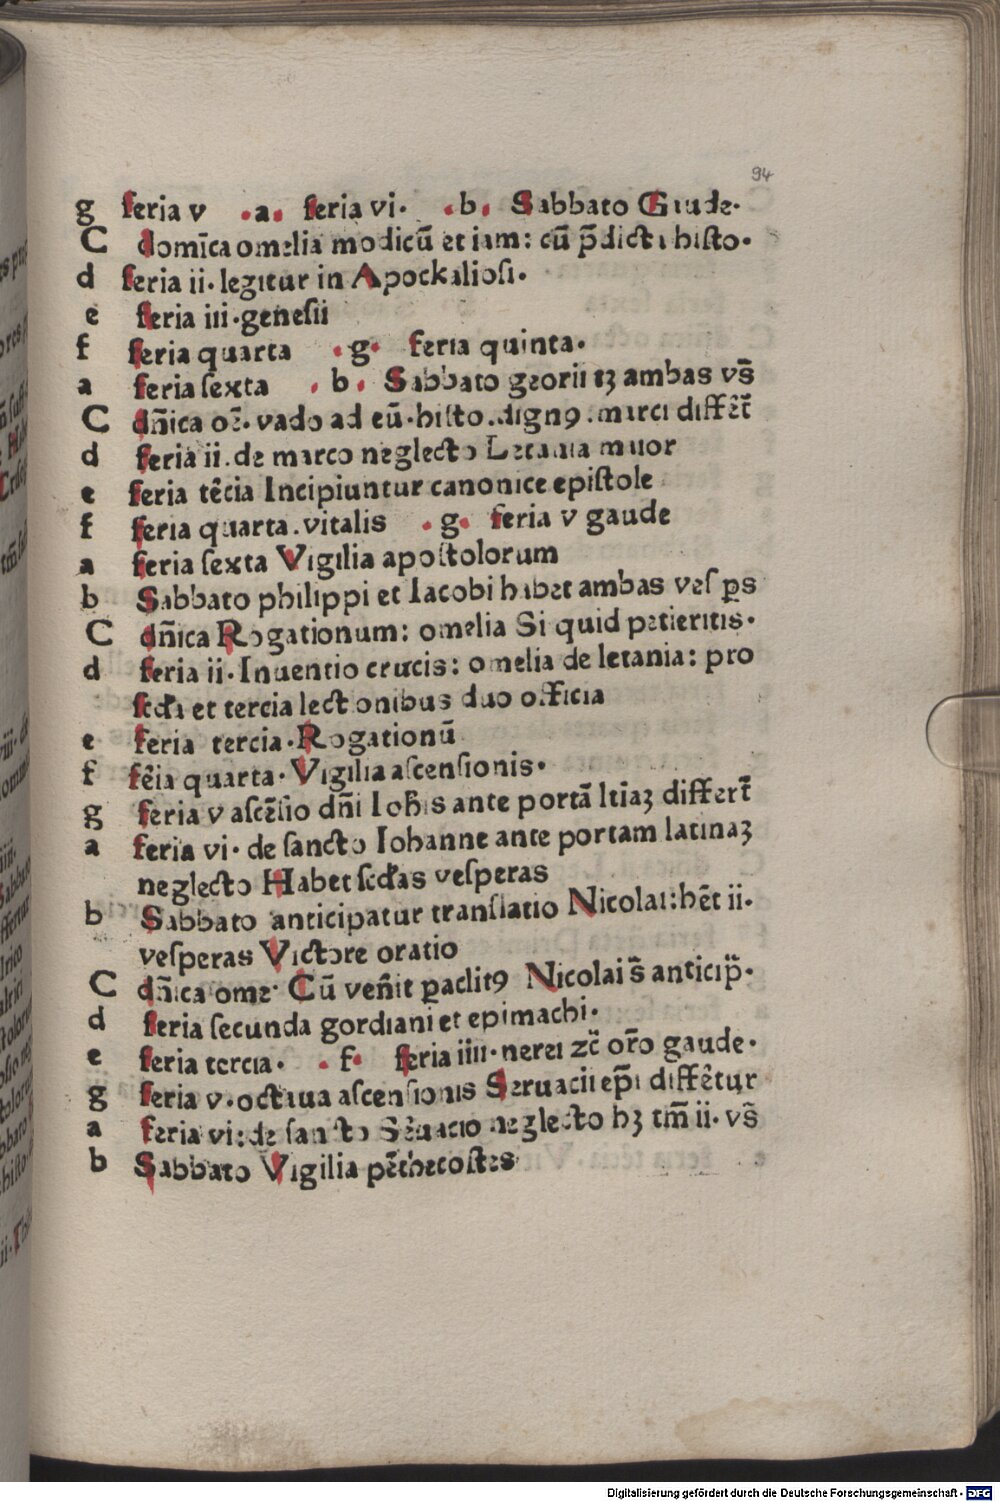 94
g feria v .a. feria vi. .b. Sabbato Gaude.
C domīca omelia modicū et iam: cū p̄dicta histo.
d feria ii. legitur in Apockaliosi.
e feria iii. genesii
f feria quarta .g. feria quinta.
a feria sexta . b . Sabbato georii tꝫ ambas vs̄
C dn̄ica oē. vado ad eū. histo. dignꝯ. marci differ̄t
d feria ii. de marco neglecto Letania maior
e feria tēcia Incipiuntur canonice epistole
f feria quarta. vitalis . g. feria v gaude
a feria sexta Vigilia apostolorum
b Sabbato philippi et Iacobi habet ambas vesꝑs
C dn̄ica Rogationum: omelia Si quid petieritis.
d feria ii. Inuentio crucis: omelia de letania: pro
scd̄a et tercia lectionibus duo officia
e feria tercia. Rogationū
f fēia quarta. Vigilia ascensionis.
g feria v ascēsio dn̄i Ioh̄is ante portā ltiaꝫ differt̄
a feria vi. de sancto Iohanne ante portam latinaꝫ
neglecto Habet scd̄as vesperas
b Sabbato anticipatur translatio Nicolai: hēt ii.
vesperas Victore oratio
C dn̄ica ome. Cū ven̄it paclitꝯ Nicolai s̄ anticip̄.
d feria secunda gordiani et epimachi.
e feria tercia. . f. feria iiii. nerei zc̄ or̄o gaude.
g feria v. octaua ascensionis Seruacii ep̄i diffētur
a feria vi: de sancto Sēuacio neglecto hꝫ tm̄ ii. vs̄
b Sabbato Vigilia pēthecostes
Digitalisierung gefördert durch die Deutsche Forschungsgemeinschaft - DFG